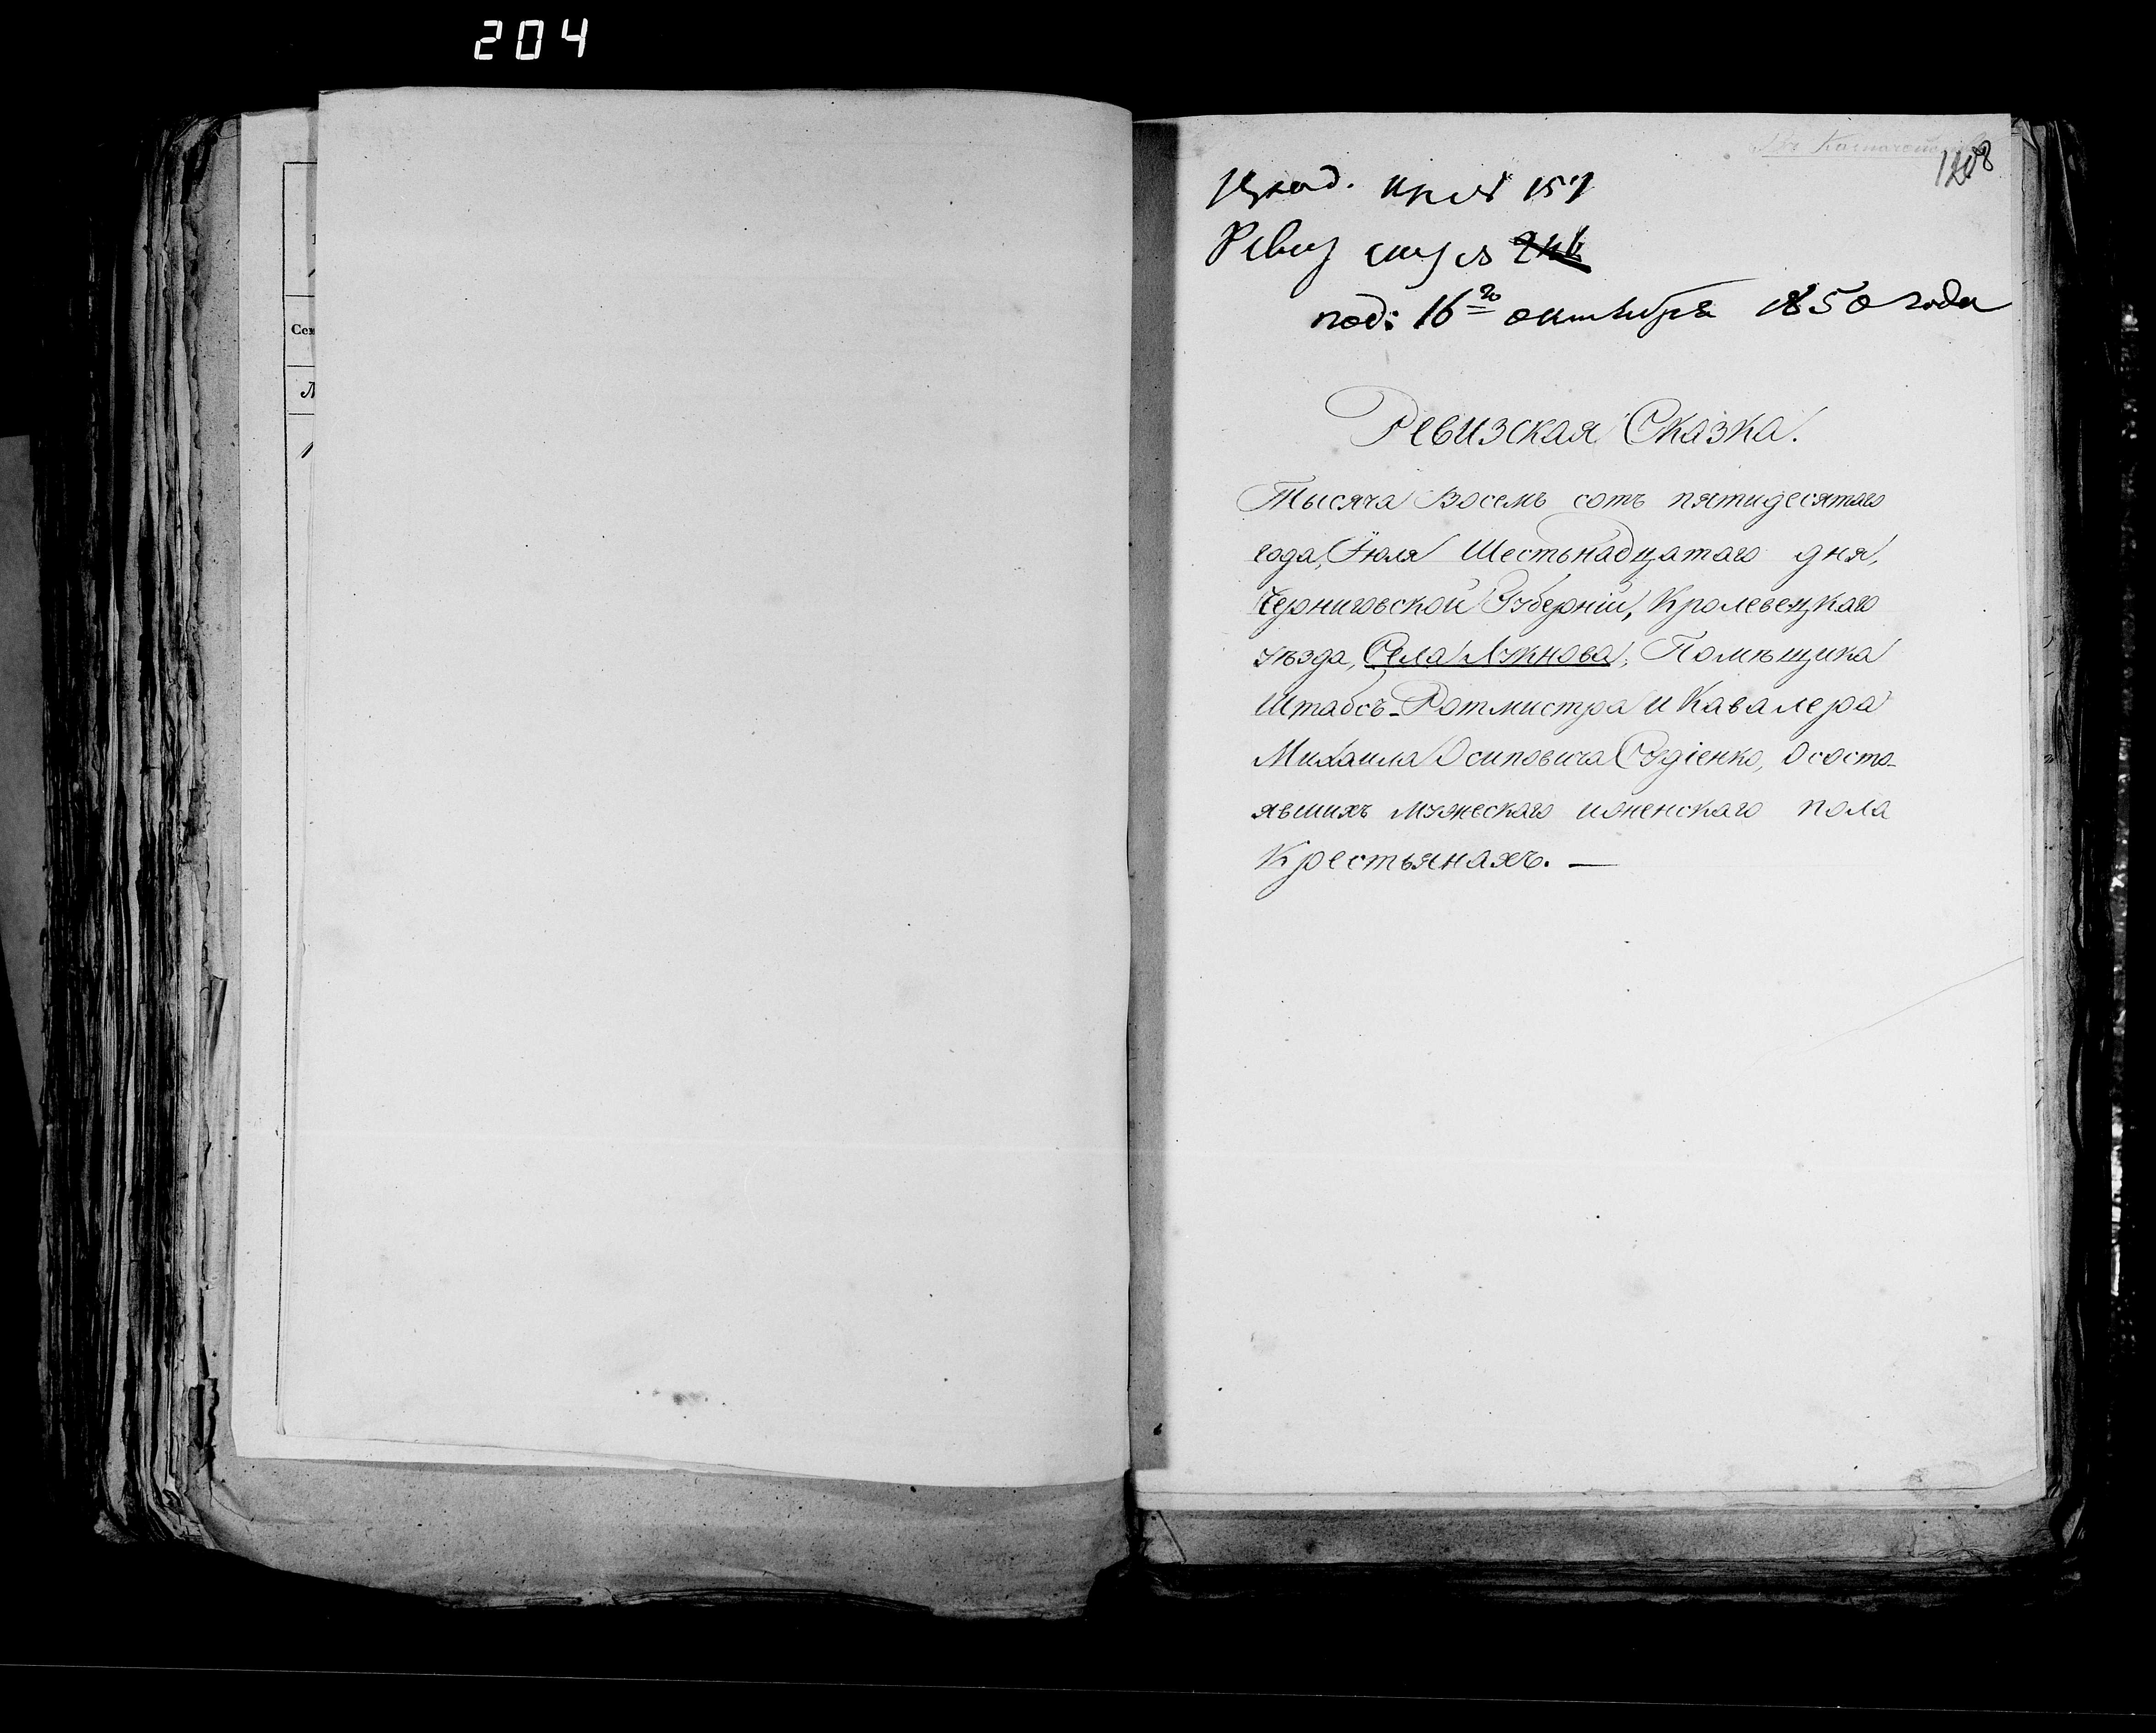 204
Сем
№
1
1208
157
Ревиз
под: 16го октября 1850 года
Ревизская Сказка.
Тысяча Восемь сотъ пятидесятого
года, Іюля Шестьнадцатаго дня,
Черниговской Губерніи, Кролевецкаго
уѣзда, Села Лукнова, Помѣщика
Штабсъ-Ротмистра и Кавалера
Михаила Осиповича Судіенко, О состо-
явшихъ мужескаго и женскаго пола
Крестьянахъ. —